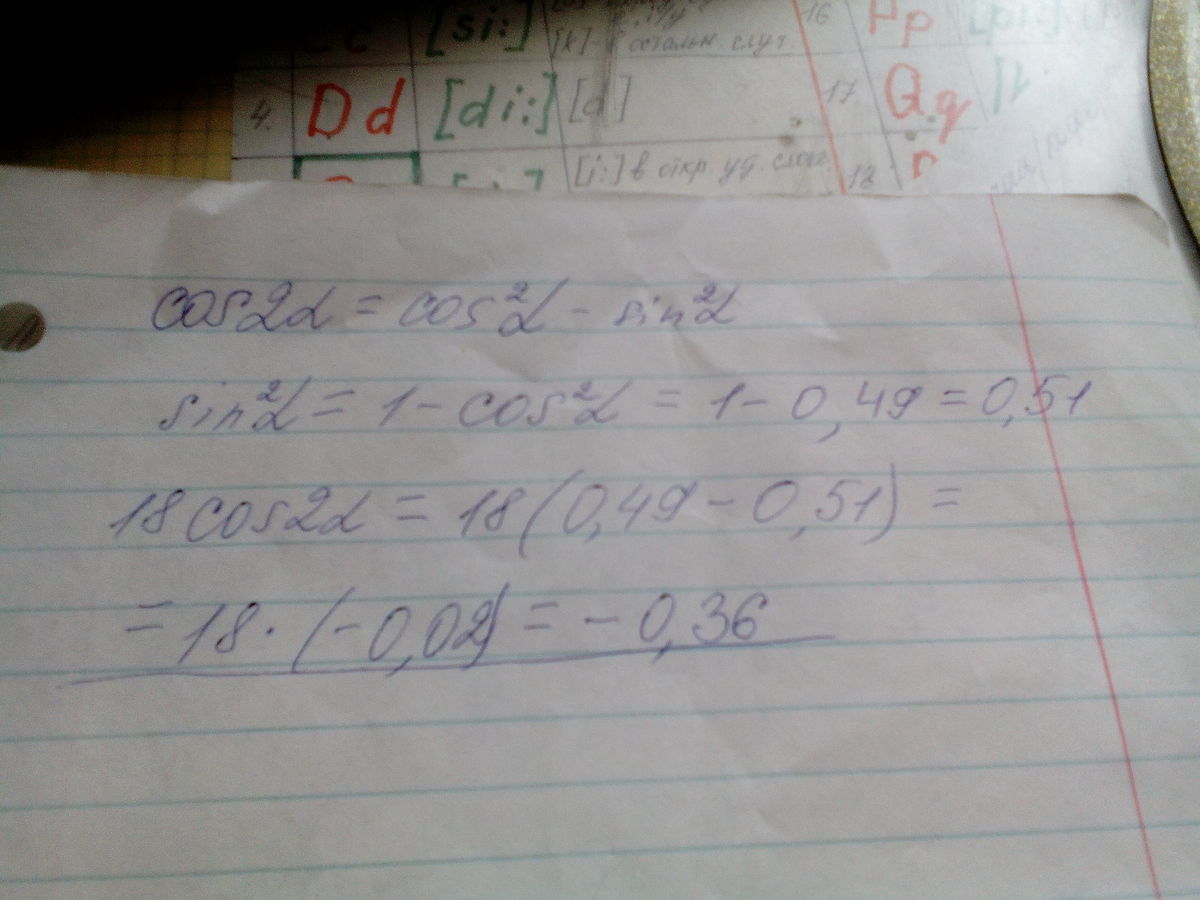 [si:] [k]- в остальн. случ. 16 Pp
4. Dd [di:] [d] 17 Qq
[i:] в откр. уд. слоге 18
cos2α = cos²α - sin²α
sin²α = 1 - cos²α = 1 - 0,49 = 0,51
18cos2α = 18(0,49 - 0,51) =
= 18 · (-0,02) = - 0,36